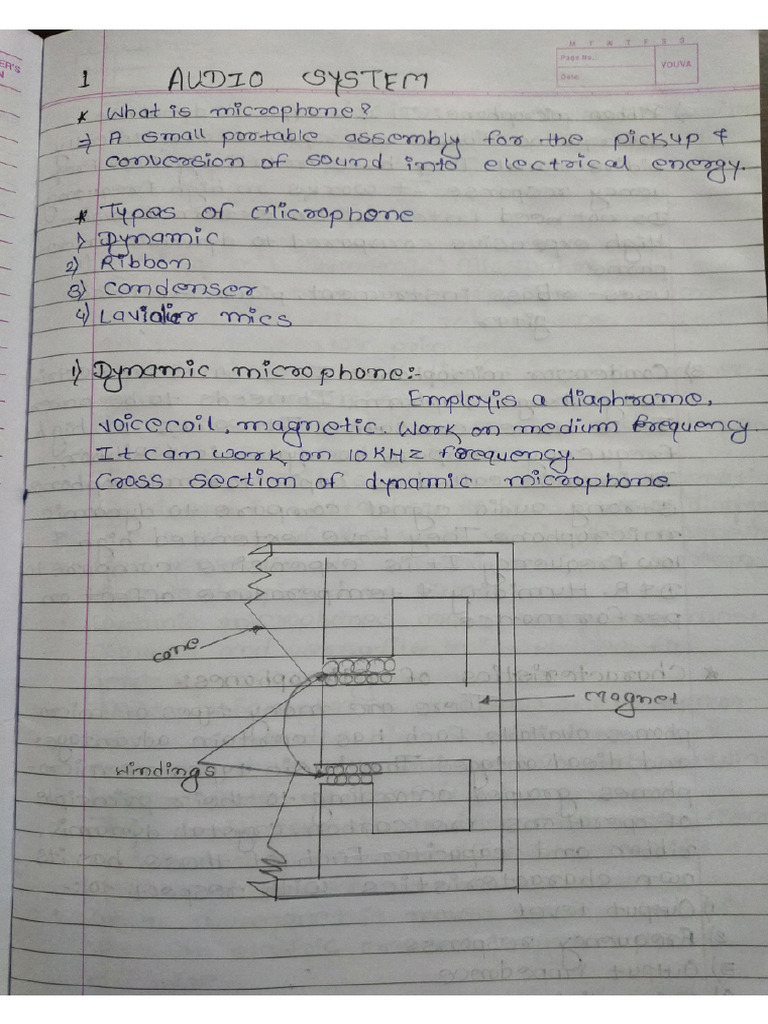 M T W T F S S
Page No.:
Date:
YOUVA
1 AUDIO SYSTEM
* What is microphone?
⇒ A small portable assembly for the pickup &
conversion of sound into electrical energy.
* Types of Microphone
1) Dynamic
2) Ribbon
3) Condenser
4) Lavidier mics
1) Dynamic microphone:-
Employis a diaphrame,
voicecoil, magnetic. Work on medium frequency.
It can work on 10KHz frequency.
Cross section of dynamic microphone
cone
Magnet
Windings